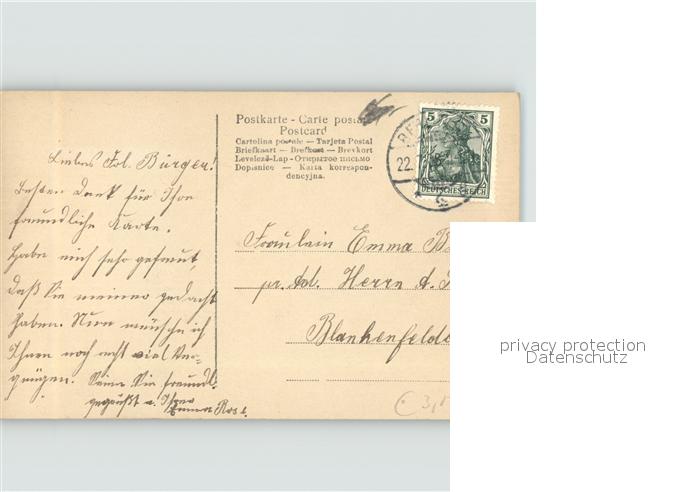 Postkarte - Carte postale
Postcard
Cartolina postale — Tarjeta Postal
Briefkaart — Brefkort — Brevkort
Levelező-Lap - Открытое письмо
Dopisnice — Karta korrespon-
dencyjna.
5 5
DEUTSCHES REICH
22.
Liebes Frl. Bürger!
Besten Dank für Ihre
freundliche Karte.
Habe mich sehr gefreut,
daß Sie meiner gedacht
haben. Nun wünsche ich
Ihnen noch recht viel Ver-
gnügen. Seien Sie freundl.
gegrüßt v. Ihrer
Emma
Fräulein Emma B
pr. Ad. Herrn A.
Blankenfelde
privacy protection
Datenschutz